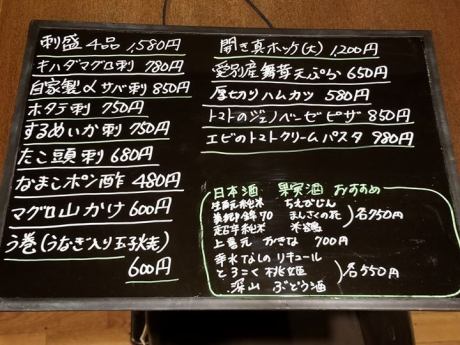 刺盛 4品 1,580円
キハダマグロ刺 780円
自家製〆サバ刺 850円
ホタテ刺 750円
するめいか刺 750円
たこ頭刺 680円
なまこポン酢 480円
マグロ山かけ 600円
う巻(うなぎ入り玉子焼)
600円
開き真ホッケ(大) 1,200円
愛別産舞茸天ぷら 650円
厚切りハムカツ 580円
トマトのジェノベーゼピザ 850円
エビのトマトクリームパスタ 980円
日本酒 果実酒 おすすめ
生酛純米 ちえびじん
70 まんさくの花
純米 各750円
上喜元 からくち 700円
幸水なしのリキュール
とろこく桃姫 各550円
深山 ぶどう酒